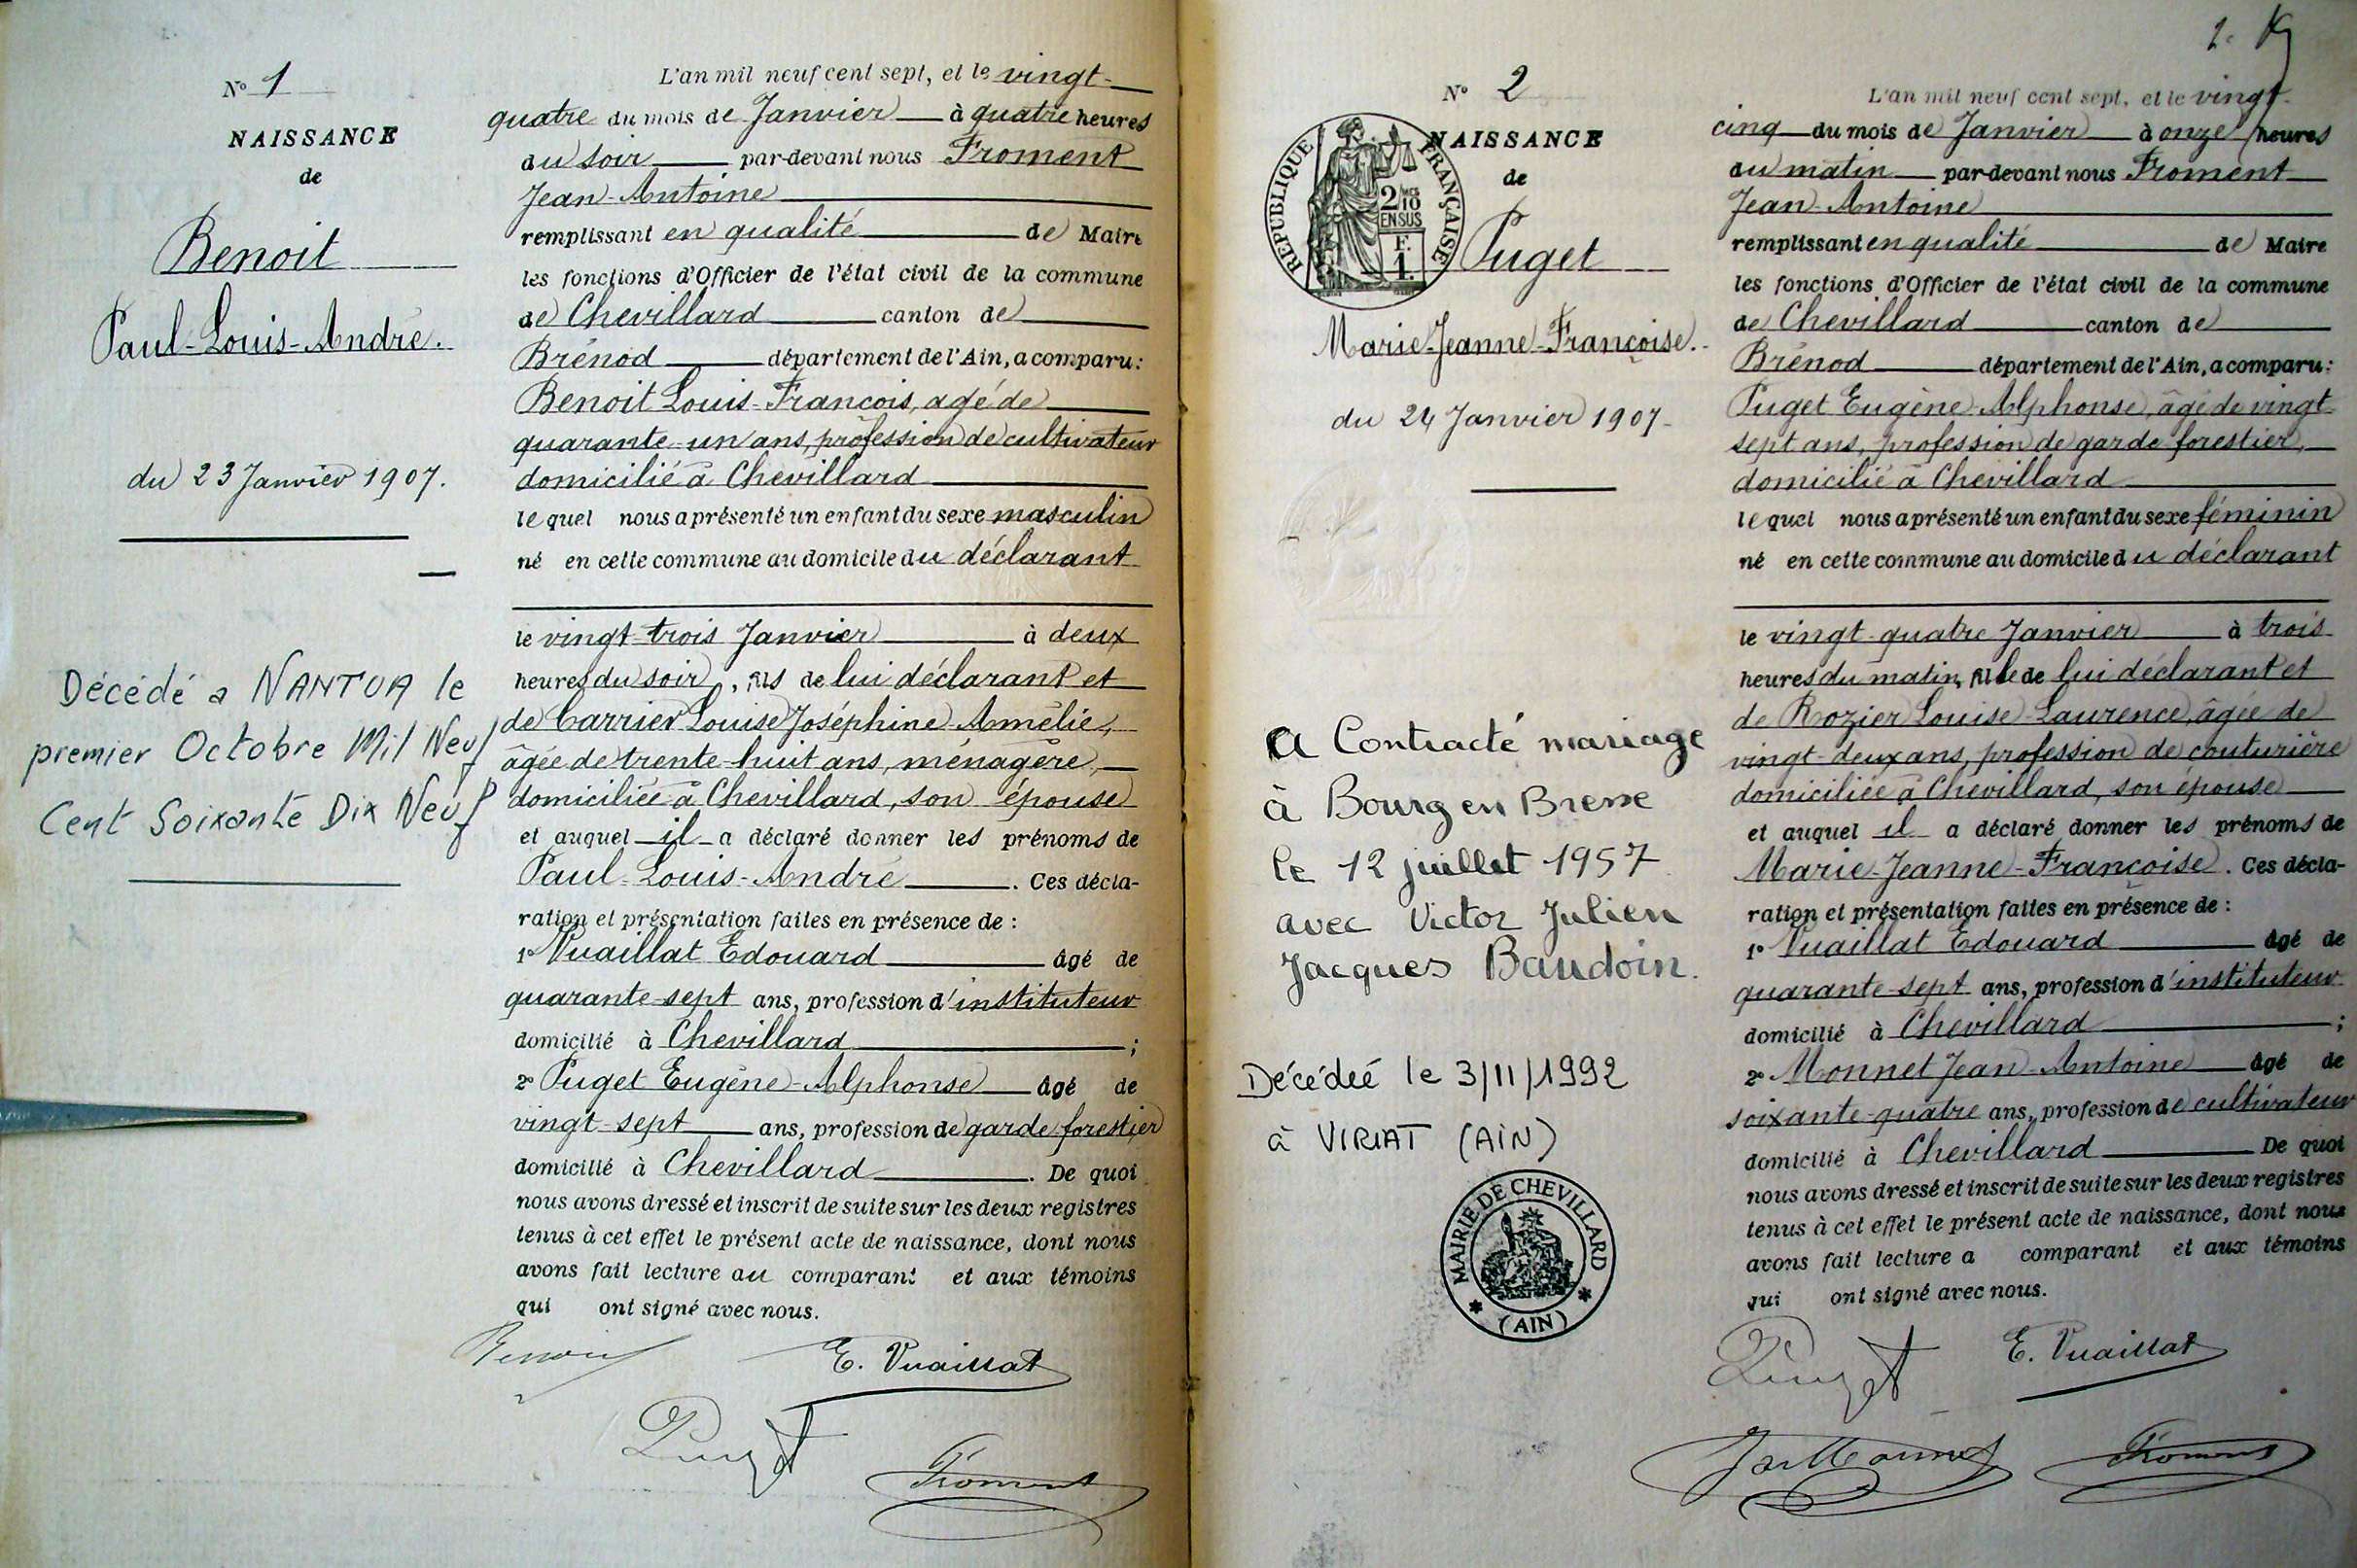 N° 1
NAISSANCE
de
Benoit
Paul-Louis-André.
du 23 Janvier 1907.
Décédé a NANTUA le
premier Octobre Mil Neuf
Cent Soixante Dix Neuf
L'an mil neuf cent sept, et le vingt-
quatre du mois de Janvier à quatre heures
du soir par-devant nous Froment
Jean-Antoine
remplissant en qualité de Maire
les fonctions d'Officier de l'état civil de la commune
de Chevillard canton de
Brénod département de l'Ain, a comparu:
Benoit Louis-François, agé de
quarante-un ans, profession de cultivateur
domicilié à Chevillard
lequel nous a présenté un enfant du sexe masculin
né en cette commune au domicile du déclarant
le vingt-trois Janvier à deux
heures du soir, fils de lui déclarant et
de Carrier Louise Joséphine-Amélie,
âgée de trente-huit ans, ménagère,
domiciliée à Chevillard, son épouse
et auquel il a déclaré donner les prénoms de
Paul-Louis-André. Ces décla-
ration et présentation faites en présence de :
1° Vuaillat Edouard âgé de
quarante-sept ans, profession d'instituteur
domicilié à Chevillard ;
2° Puget Eugène-Alphonse âgé de
vingt-sept ans, profession de garde forestier
domicilié à Chevillard. De quoi
nous avons dressé et inscrit de suite sur les deux registres
tenus à cet effet le présent acte de naissance, dont nous
avons fait lecture au comparant et aux témoins
qui ont signé avec nous.
Benoit
E. Vuaillat
Puget
Froment
N° 2
NAISSANCE
de
REPUBLIQUE FRANÇAISE
2/10
EN SUS
F.
1.
Puget
Marie-Jeanne-Françoise.
du 24 Janvier 1907
A Contracté mariage
à Bourg en Bresse
le 12 juillet 1957
avec Victor Julien
Jacques Baudoin.
Décédeé le 3/11/1992
à VIRIAT (AIN)
MAIRIE DE CHEVILLARD
(AIN)
L'an mil neuf cent sept, et le vingt-
cinq du mois de Janvier à onze heures
du matin par-devant nous Froment
Jean-Antoine
remplissant en qualité de Maire
les fonctions d'Officier de l'état civil de la commune
de Chevillard canton de
Brénod département de l'Ain, a comparu:
Puget Eugène-Alphonse, âgé de vingt
sept ans, profession de garde-forestier,
domicilié à Chevillard
lequel nous a présenté un enfant du sexe féminin
né en cette commune au domicile du déclarant
le vingt-quatre Janvier à trois
heures du matin, fille de lui déclarant et
de Rozier Louise-Laurence, âgée de
vingt-deux ans, profession de couturière
domiciliée à Chevillard, son épouse
et auquel il a déclaré donner les prénoms de
Marie-Jeanne-Françoise. Ces décla-
ration et présentation faites en présence de :
1° Vuaillat Edouard âgé de
quarante-sept ans, profession d'instituteur
domicilié à Chevillard ;
2° Monnet Jean-Antoine âgé de
soixante-quatre ans, profession de cultivateur
domicilié à Chevillard De quoi
nous avons dressé et inscrit de suite sur les deux registres
tenus à cet effet le présent acte de naissance, dont nous
avons fait lecture a comparant et aux témoins
qui ont signé avec nous.
Puget
E. Vuaillat
Froment